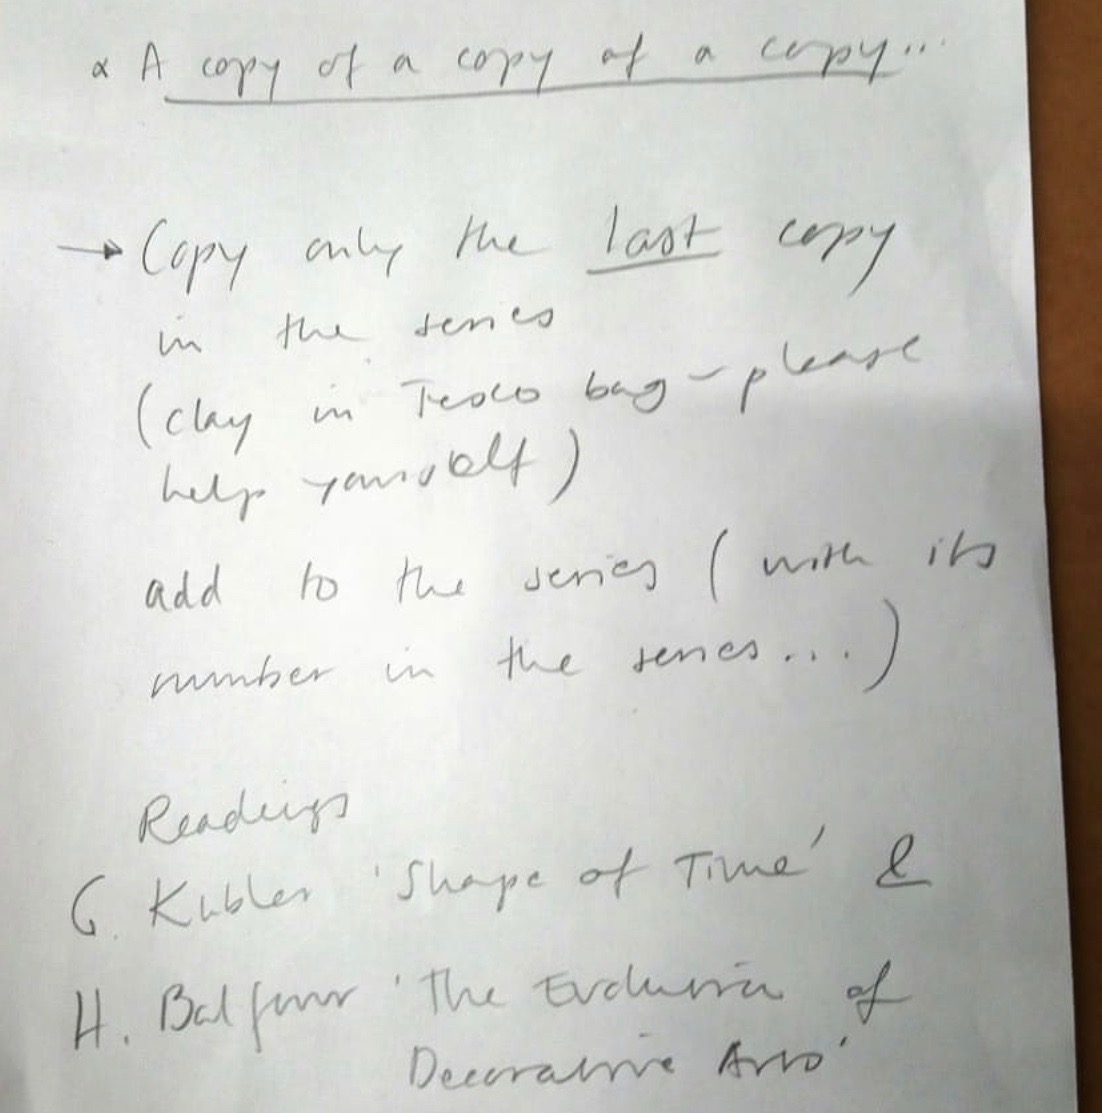 α A copy of a copy of a copy...
→ Copy only the last copy
in the series
(clay in Tesco bag - please
help yourself)
add to the series (with its
number in the series...)
Readings
G. Kubler 'Shape of Time' &
H. Balfour 'The Evolution of
Decorative Arts'